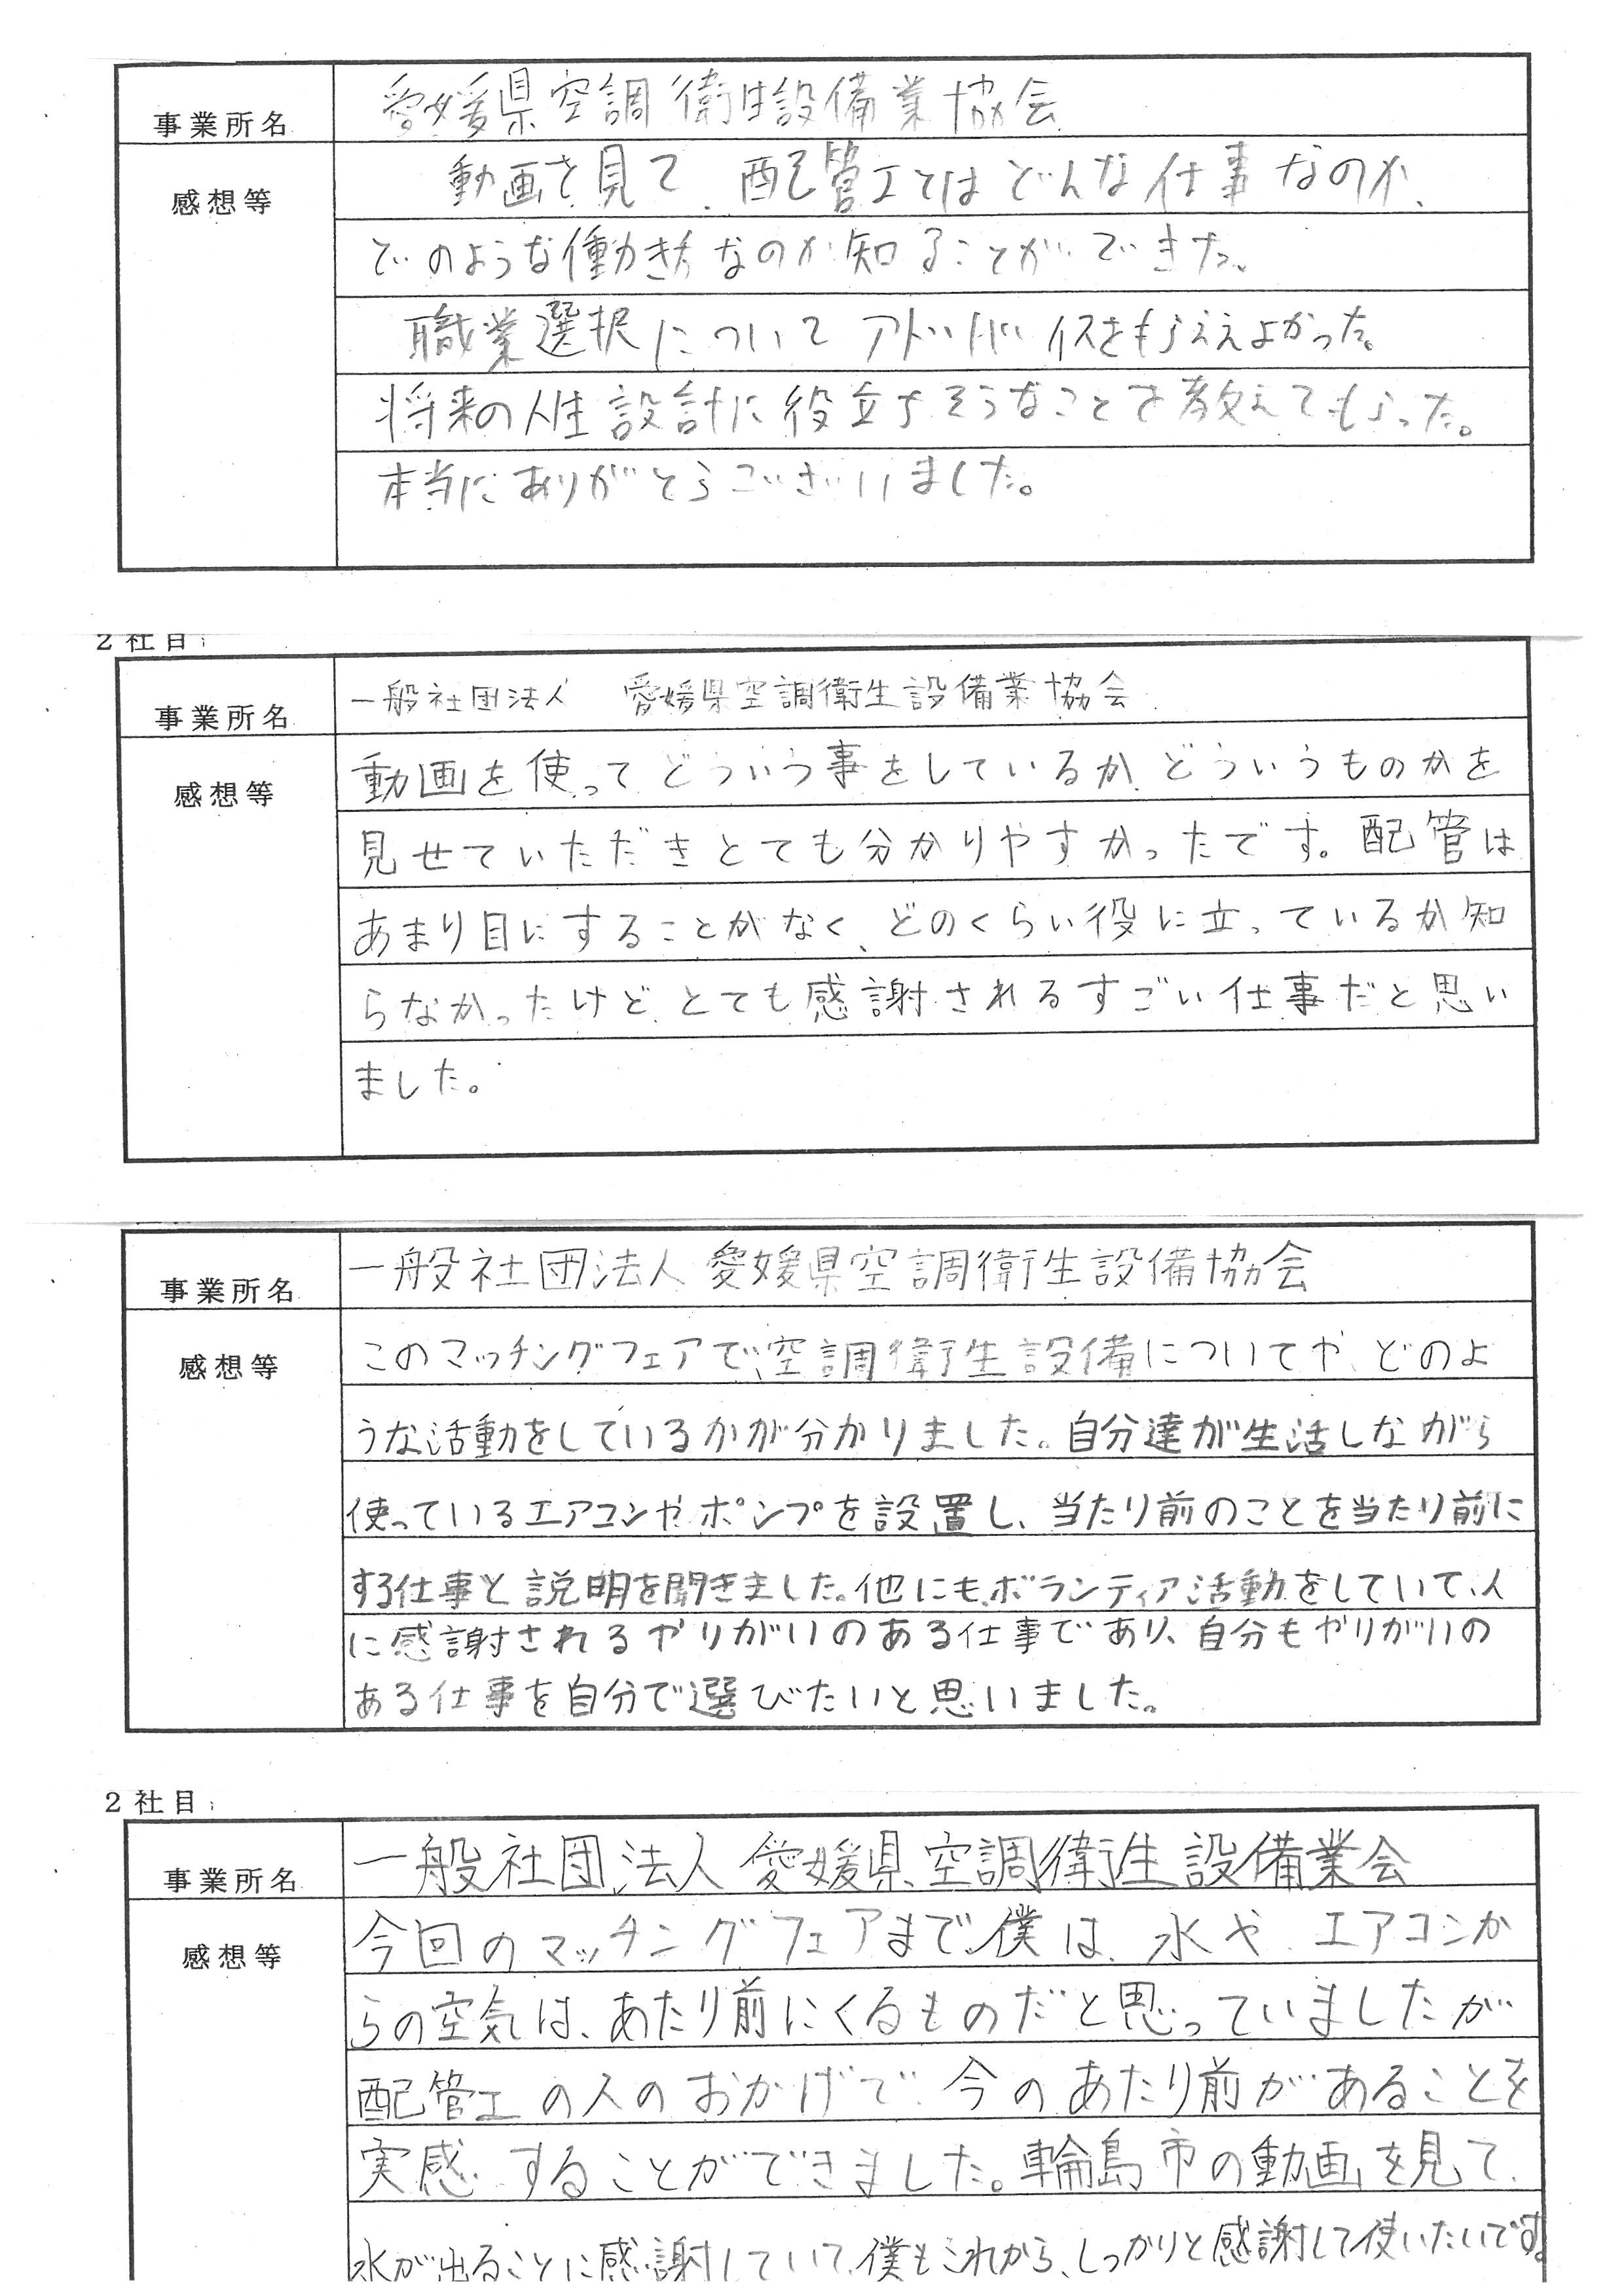 事業所名 愛媛県空調衛生設備業協会
感想等 動画を見て、配管工とはどんな仕事なのか、
どのような働き方なのか知ることができた。
職業選択についてアドバイスをもらええよかった。
将来の人生設計に役立ちそうなことを教えてもらった。
本当にありがとうございました。
2社目
事業所名 一般社団法人 愛媛県空調衛生設備業協会
感想等 動画を使ってどういう事をしているか、どういうものかを
見せていただきとても分かりやすかったです。配管は
あまり目にすることがなく、どのくらい役に立っているか知
らなかったけど、とても感謝されるすごい仕事だと思い
ました。
事業所名 一般社団法人 愛媛県空調衛生設備協会
感想等 このマッチングフェアで、空調衛生設備についてや、どのよ
うな活動をしているかが分かりました。自分達が生活しながら
使っているエアコンやポンプを設置し、当たり前のことを当たり前に
する仕事と説明を聞きました。他にも、ボランティア活動をしていて、人
に感謝されるやりがいのある仕事であり、自分もやりがいの
ある仕事を自分で選びたいと思いました。
2社目
事業所名 一般社団法人 愛媛県空調衛生設備業会
感想等 今回のマッチングフェアまで、僕は、水や、エアコンか
らの空気は、あたり前にくるものだと思っていましたが
配管工の人のおかげで、今のあたり前があることを
実感することができました。輪島市の動画を見て、
水が出ることに感謝していて、僕もこれから、しっかりと感謝して使いたいです。